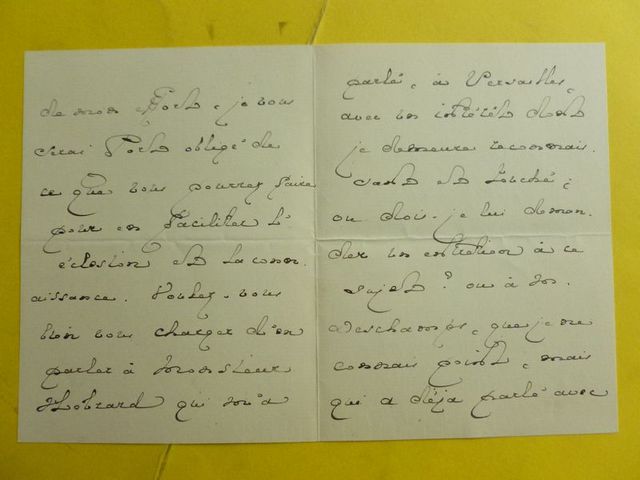 de mon effort, je vous
serai fort obligé de
ce que vous pourrez faire
pour en faciliter l'
éclosion et la conn-
aissance. Voulez-vous
bien vous charger d'en
parler à Monsieur
qui m'a
parlé, à Versailles,
avec un intérêt dont
je demeure reconnais-
sant et touché;
ou dois-je lui deman-
der un entretien à ce
sujet? ou à M.
Deschamps, que je ne
connais point, mais
qui a déjà parlé avec